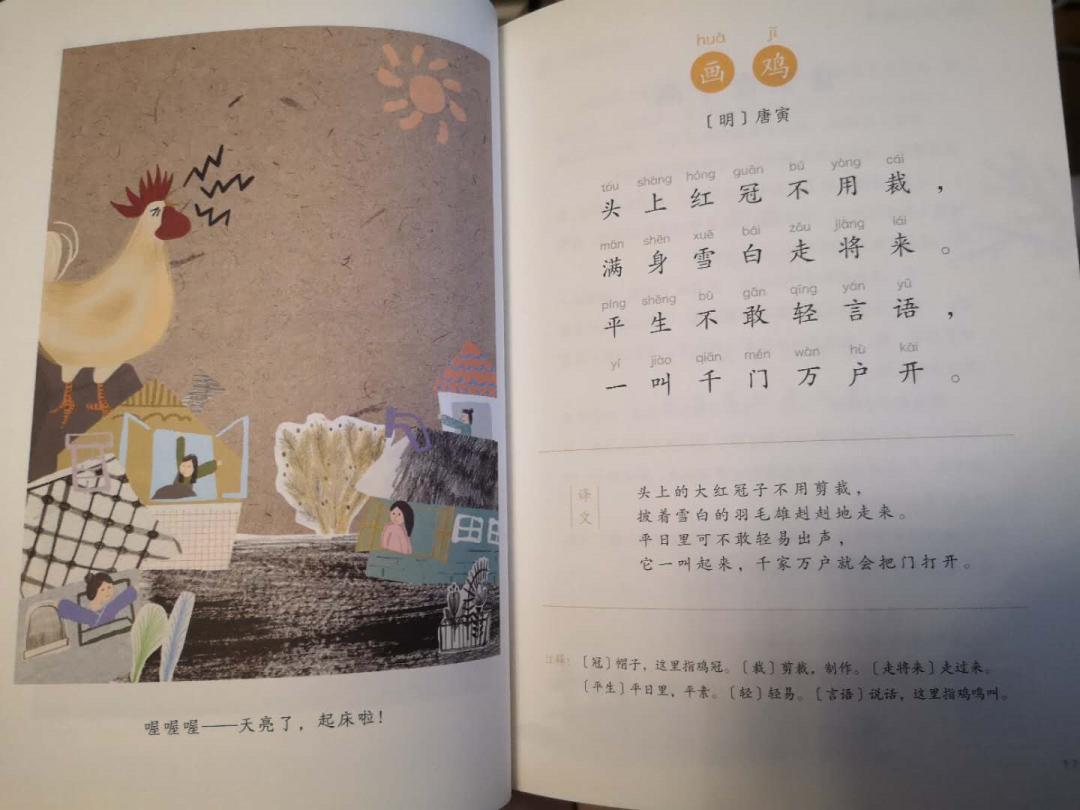 喔喔喔——天亮了，起床啦！
huà jī
画鸡
〔明〕唐寅
tóu shàng hóng guān bú yòng cái
头上红冠不用裁，
mǎn shēn xuě bái zǒu jiāng lái
满身雪白走将来。
píng shēng bù gǎn qīng yán yǔ
平生不敢轻言语，
yí jiào qiān mén wàn hù kāi
一叫千门万户开。
译文
头上的大红冠子不用剪裁，
披着雪白的羽毛雄赳赳地走来。
平日里可不敢轻易出声，
它一叫起来，千家万户就会把门打开。
注释：〔冠〕帽子，这里指鸡冠。〔裁〕剪裁，制作。〔走将来〕走过来。
〔平生〕平日里，平素。〔轻〕轻易。〔言语〕说话，这里指鸡鸣叫。